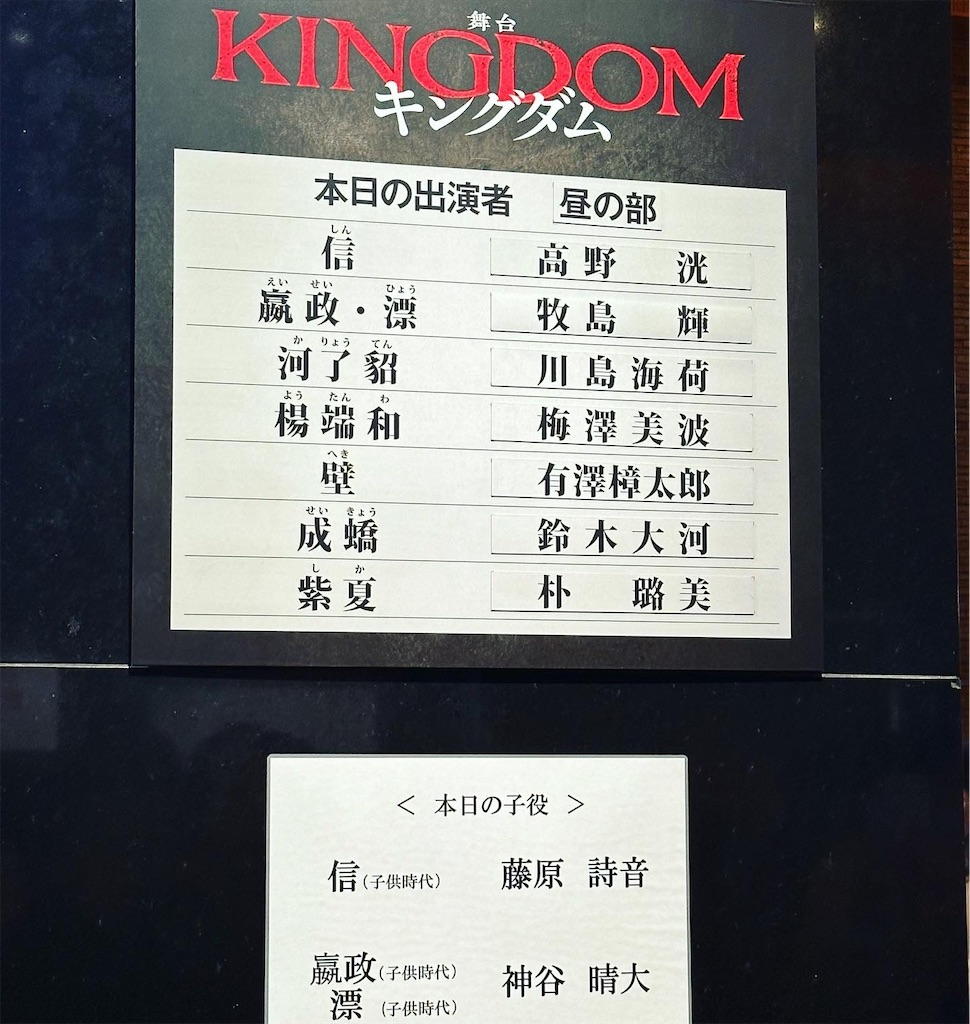 舞台
KINGDOM
キングダム
本日の出演者 昼の部
しん
信 高野 洸
えい せい ひょう
嬴政・漂 牧島 輝
か りょう てん
河了貂 川島海荷
よう たん わ
楊端和 梅澤美波
へき
壁 有澤樟太郎
せい きょう
成蟜 鈴木大河
し か
紫夏 朴 璐美
＜ 本日の子役 ＞
信(子供時代) 藤原 詩音
嬴政(子供時代) 神谷 晴大
漂 (子供時代)